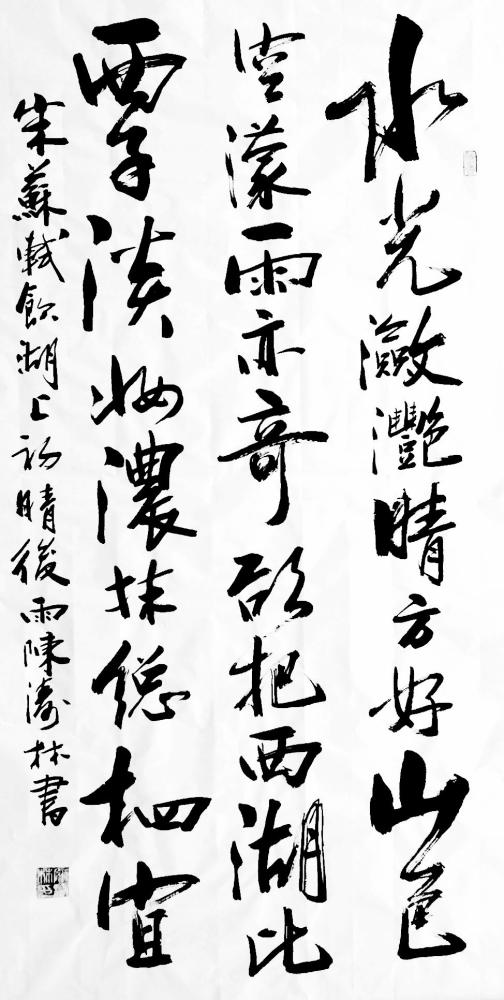 水光瀲灧晴方好山色
空濛雨亦奇欲把西湖比
西子淡妝濃抹總相宜
宋蘇軾飲湖上初晴後雨陳濤林書